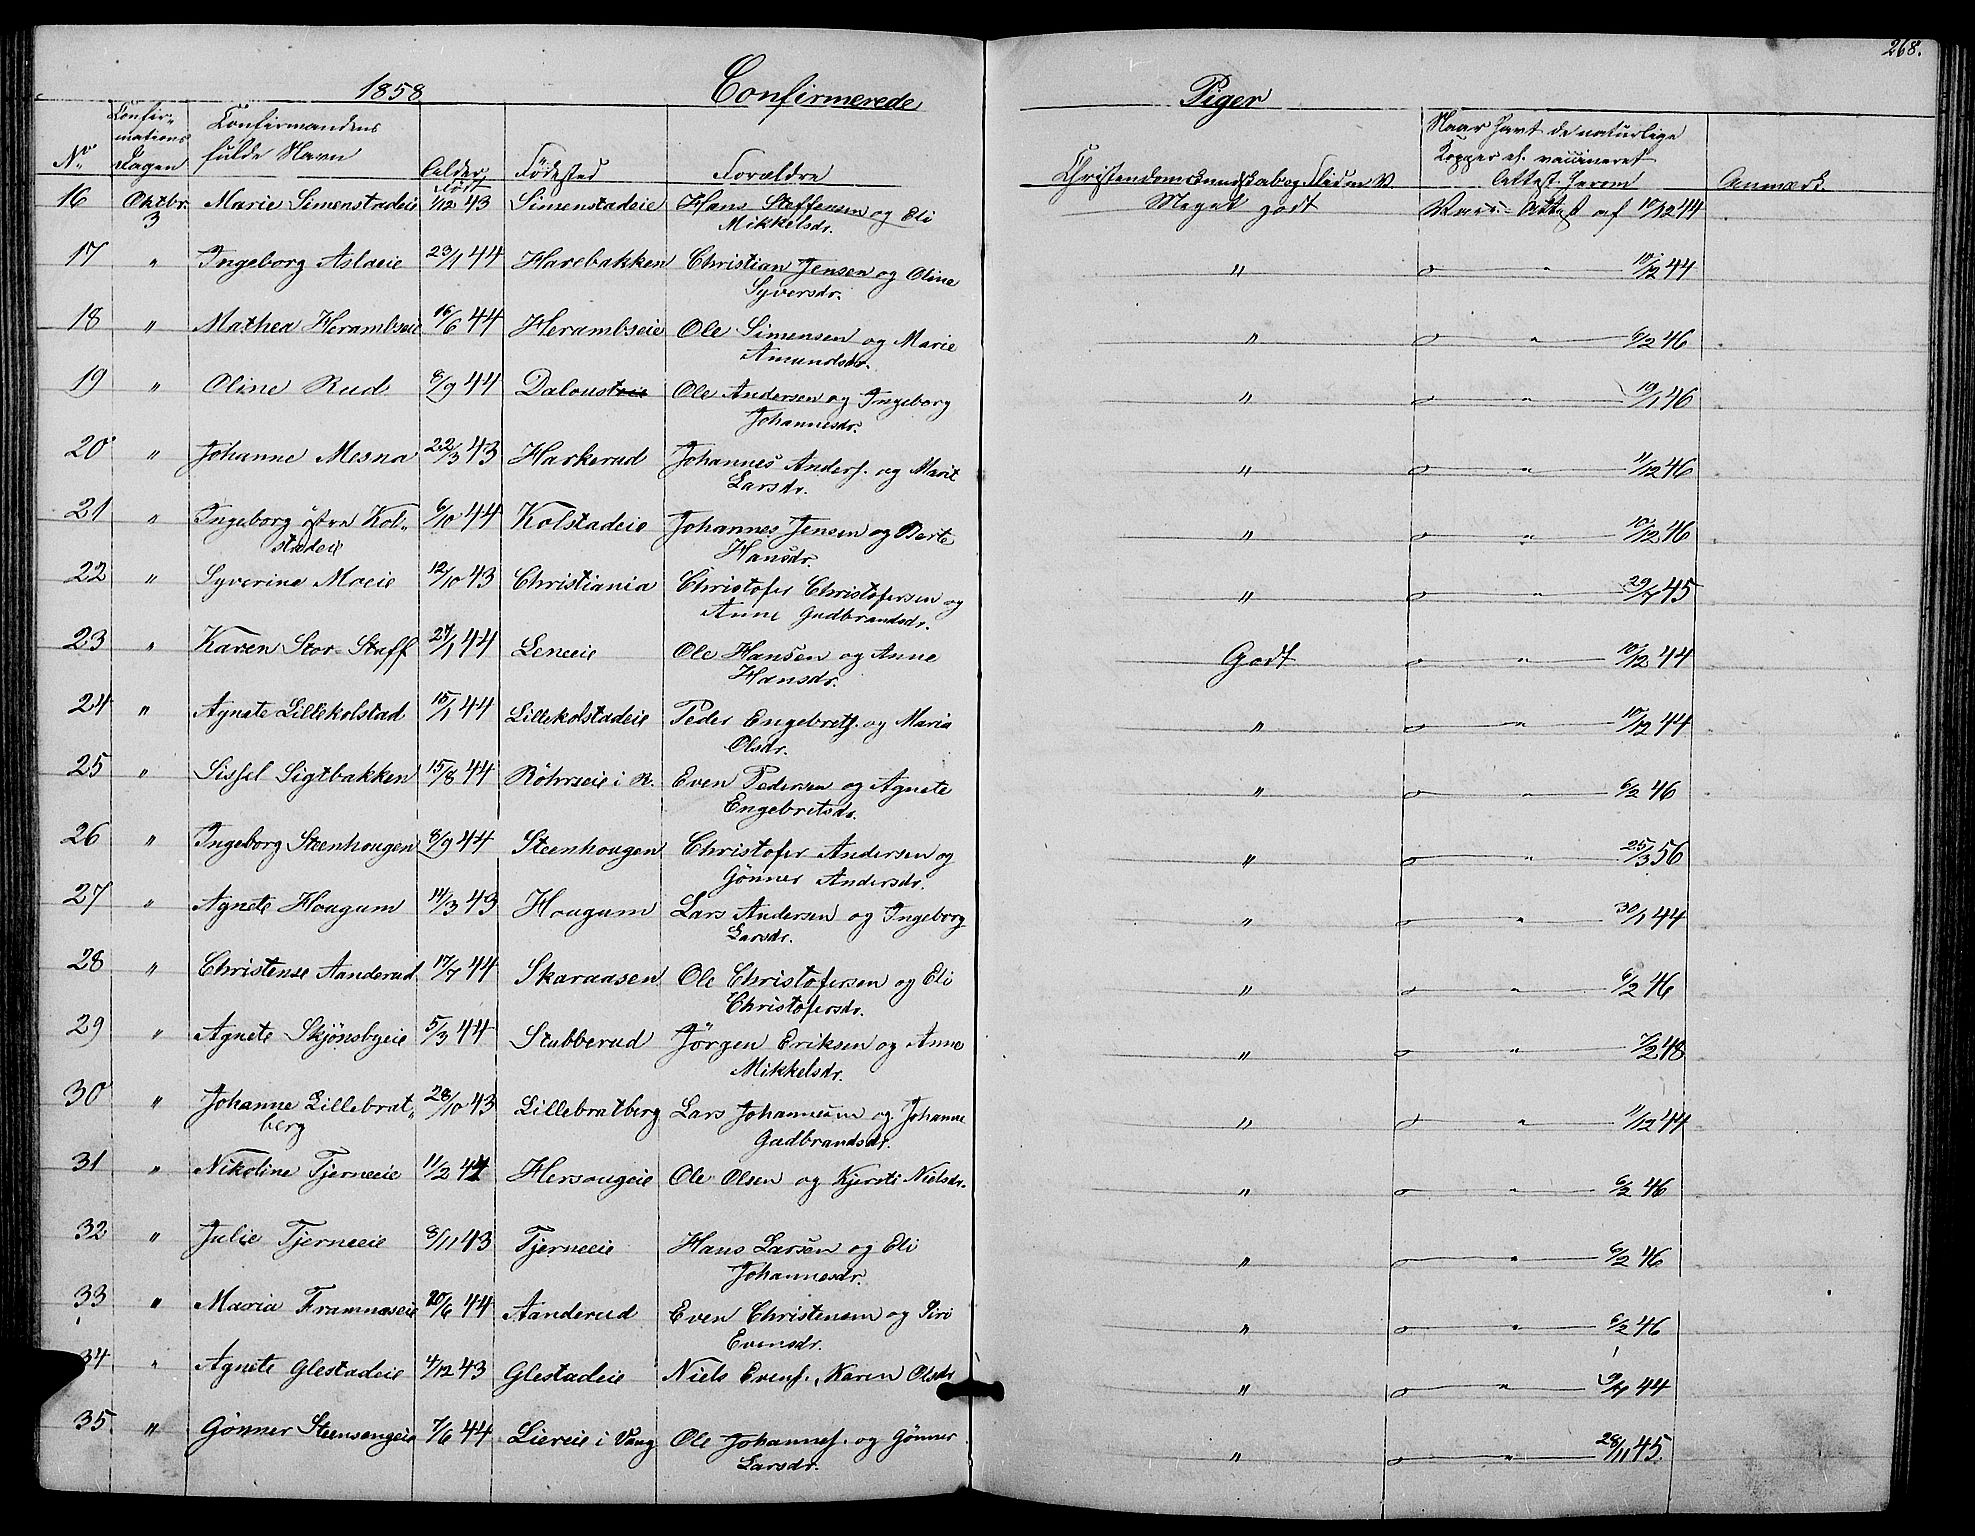 268.
1858 Confirmerede Piger
No. Confir-mations Dagen Confirmandens fulde Navn Alder, Född Födested Forældre Christendomskundskab og Flid m.v. Naar havt de naturlige Kopper el. vaccineret Attest herom Anmærk.
16 Oktbr. 3 Marie Simenstadeie 1/12 43 Simenstadeie Hans Steffensen og Eli Meget godt Vacc. Attest af 10/12 44
Mikkelsdr.
17 " Ingeborg Aslaeie 23/1 44 Harebakken Christian Jensen og Oline " " 10/12 44
Syversdr.
18 " Mathea Herambseie 16/6 44 Herambseie Ole Simensen og Marie " " 6/2 46
Amundsdr.
19 " Oline Rud 8/9 44 Daloust Ole Andersen og Ingeborg " " 19/1 46
Johannesdr.
20 " Johanne Mesna 22/3 43 Harkerud Johannes Anders. og Marit " " 11/12 46
Larsdr.
21 " Ingeborg östre Kol- 6/10 44 Kolstadeie Johannes Jensen og Berte " " 10/12 46
stadeie Hansdr.
22 " Syverine Moeie 12/10 43 Christiania Christofer Christofersen og " " 29/7 45
Anne Gudbrandsdr.
23 " Karen Stor-Staff 27/1 44 Leneeie Ole Hansen og Anne Godt " 10/12 44
Hansdr.
24 " Agnete Lillekolstad 15/1 44 Lillekolstadeie Peder Engebrets. og Maria " " 10/12 44
Olsdr.
25 " Sissel Sigtbakken 15/8 44 Röhrseie i R. Even Pedersen og Agnete " " 6/2 46
Engebretsdr.
26 " Ingeborg Steenhougen 8/9 44 Steenhougen Christofer Andersen og " " 25/3 56
Gönner Andersdr.
27 " Agnete Hougum 14/3 43 Hougum Lars Andersen og Ingeborg " " 30/1 44
Larsdr.
28 " Christense Aanderud 17/7 44 Skaraasen Ole Christofersen og Eli " " 6/2 46
Christofersdr.
29 " Agnete Skjönsbyeie 5/3 44 Stubberud Jörgen Eriksen og Anne " " 7/2 48
Mikkelsdr.
30 " Johanne Lillebrat- 28/10 43 Lillebratberg Lars Johannesen og Johanne " " 11/12 44
berg Gudbrandsdr.
31 " Nikoline Tjerneeie 11/2 44 Hersougeie Ole Olsen og Kjersti Nielsdr. " " 6/2 46
32 " Julie Tjerneeie 8/11 43 Tjerneeie Hans Larsen og Eli " " 6/2 46
Johannesdr.
33 " Maria Framnæseie 20/6 44 Aanderud Even Christensen og Siri " " 6/2 46
Evensdr.
34 " Agnete Glestadeie 4/12 43 Glestadeie Niels Evens., Karen Olsdr " " 44
35 " Gönner Steensengeie 7/6 44 Liereie i Vang Ole Johannes. og Gönner " " 28/11 45.
Larsdr.